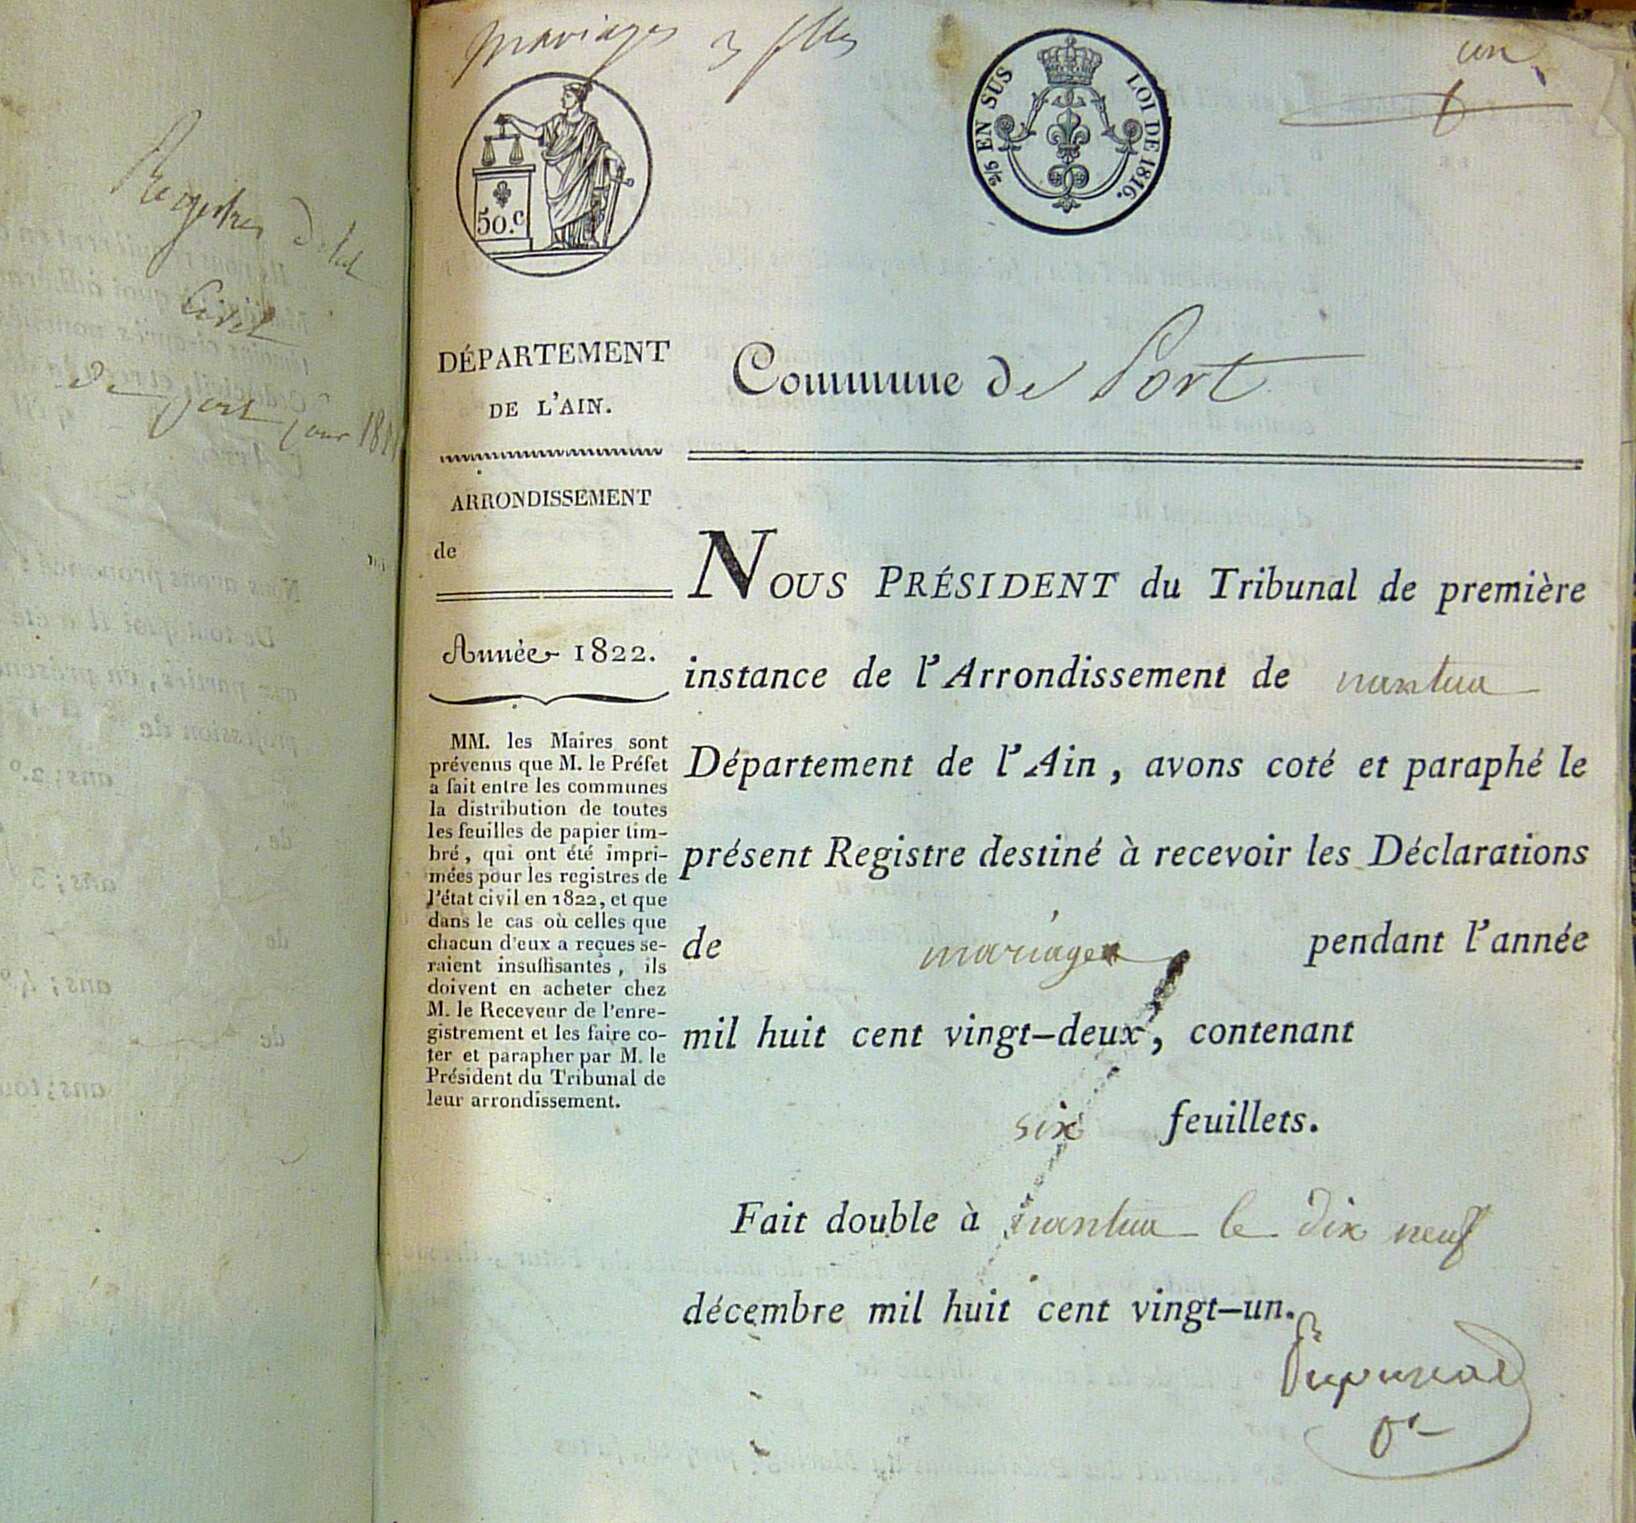 Registres
Civil
de Port pour
mariages 3 flles
un
50.c
2/5 EN SUS
LOI DE 1816.
DÉPARTEMENT
DE L'AIN.
ARRONDISSEMENT
de
Année 1822.
MM. les Maires sont
prévenus que M. le Préfet
a fait entre les communes
la distribution de toutes
les feuilles de papier tim-
bré, qui ont été impri-
mées pour les registres de
l'état civil en 1822, et que
dans le cas où celles que
chacun d'eux a reçues se-
raient insuffisantes, ils
doivent en acheter chez
M. le Receveur de l'enre-
gistrement et les faire co-
ter et parapher par M. le
Président du Tribunal de
leur arrondissement.
Commune de Port
NOUS PRÉSIDENT du Tribunal de première
instance de l'Arrondissement de nantua
Département de l'Ain, avons coté et paraphé le
présent Registre destiné à recevoir les Déclarations
de mariages pendant l'année
mil huit cent vingt-deux, contenant
six feuillets.
Fait double à nantua le dix neuf
décembre mil huit cent vingt-un.